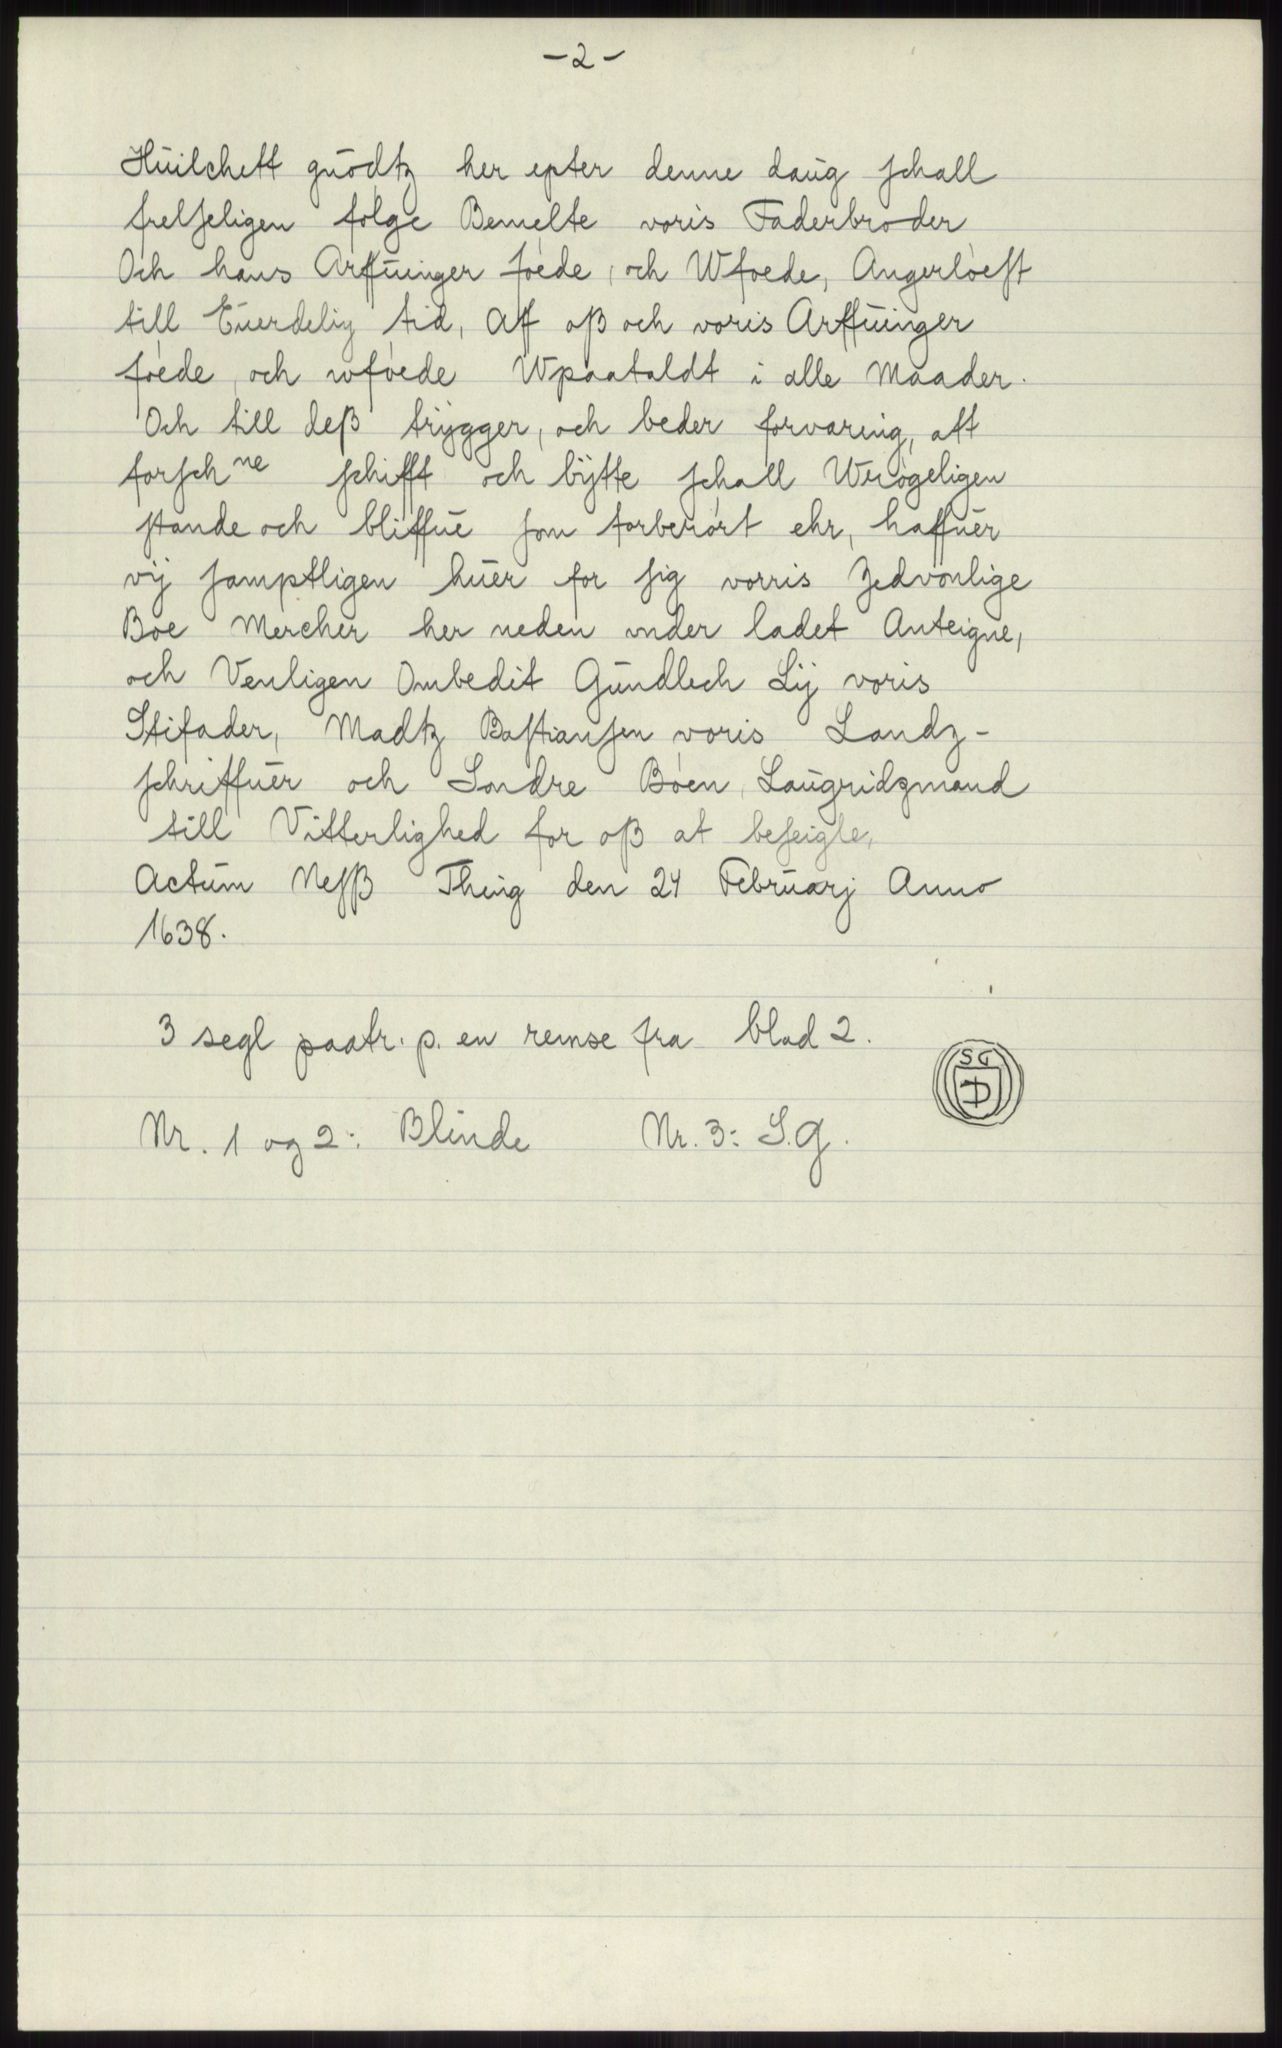 -2-
Huilchett guodtz her epter denne daug schall
frelseligen følge Bemelte voris Faderbroder
Och hans Arffuinger føede, och Wføede, Angerløest
till Euerdelig tid, Aff oß och voris Arffuinger
føede, och wføede Wpaataldt i alle Maader.
Och till deß trÿgger, och beder forvaring, att
forsch ne schifft och bÿtte schall Wrøgeligen
stande och bliffue som forberørt ehr, haffuer
vij samptligen huer for sig vorris Zedvonlige
Boe Mercher her neden vnder ladet Anteigne,
och Venligen Ombedit Gundlech Lij voris
Stifader, Madtz Bastiansen voris Landz-
schriffuer och Sondre Bøen, Laugridzmand
till Vitterlighed for oß at beseigle,
Actum Nesß Thing den 24 Februarj Anno
1638.
3 segl paatr. p. en remse fra blad 2.
SG
Nr. 1 og 2: Blinde Nr. 3: S.G.